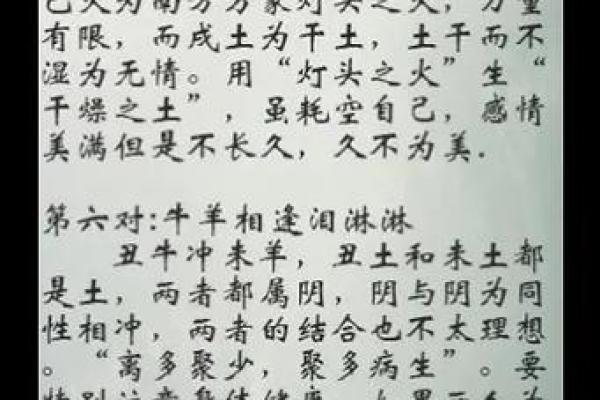 火为南方万家灯头之火，力量
有限，而戌土为干土，土干而不
湿为无情。用“灯头之火”生“
干燥之土”，虽耗空自己，感情
美满但是不长久，久不为美.
第六对:牛羊相逢泪淋淋
丑牛冲未羊，丑土和未土都
是土，两者都属阴，阴与阴为同
性相冲，两者的结合也不太理想
。“离多聚少，聚多病生”。要
特别注意身体健康